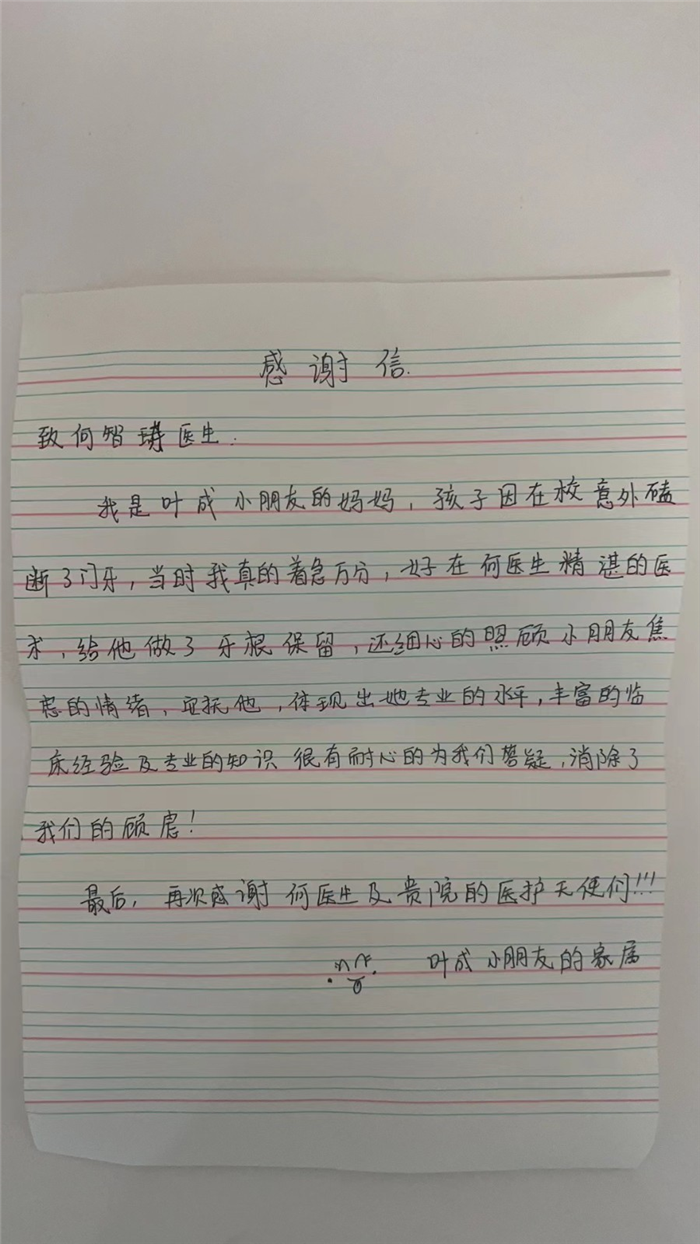 感谢信.
致何智琦医生.
我是叶成小朋友的妈妈，孩子因在校意外磕
断了门牙，当时我真的着急万分，好在何医生精湛的医
术，给他做了牙根保留，还细心的照顾小朋友焦
虑的情绪，安抚他，体现出她专业的水平，丰富的临
床经验及专业的知识 很有耐心的为我们答疑，消除了
我们的顾虑！
最后，再次感谢 何医生及贵院的医护天使们!!!
叶成小朋友的家属